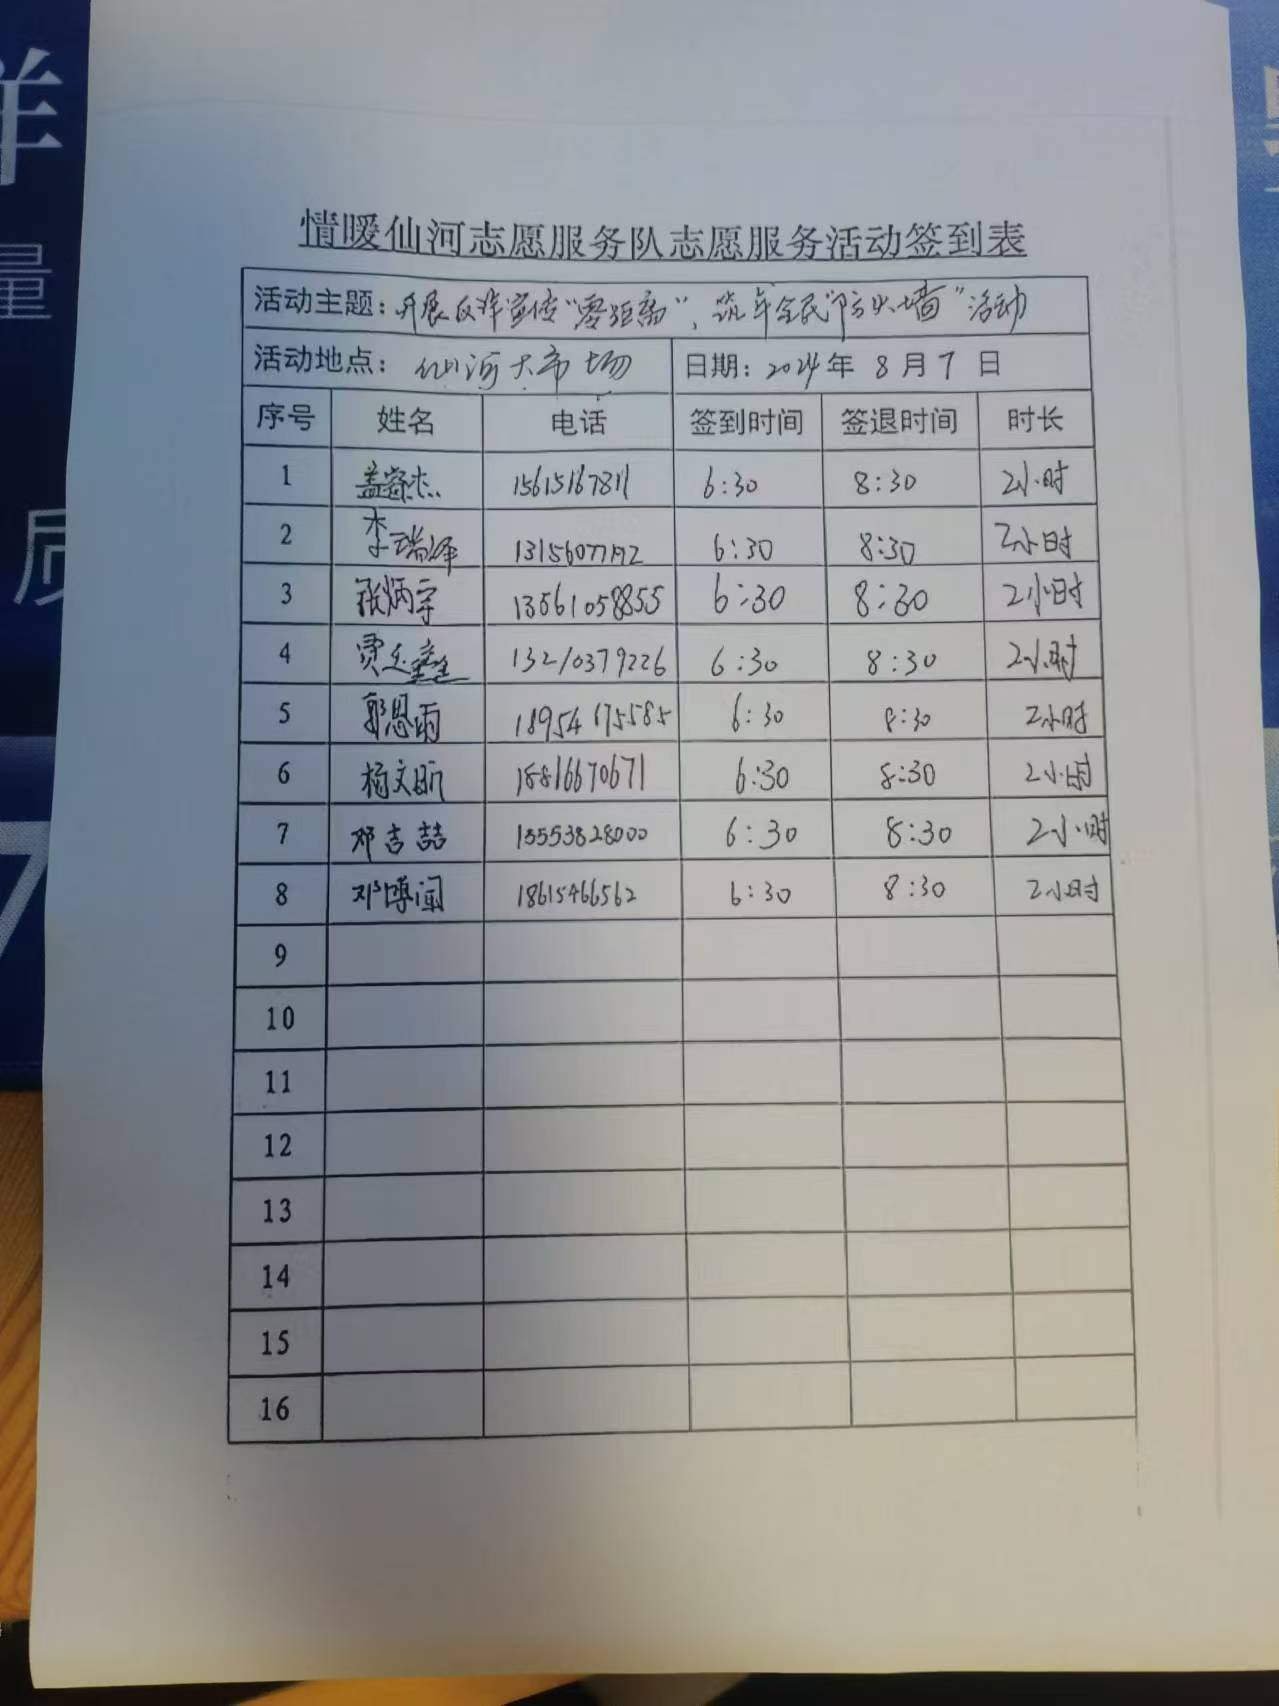 样
量
质
7
情暖仙河志愿服务队志愿服务活动签到表
活动主题：开展反诈宣传“零距离”，筑牢全民“防火墙”活动
活动地点：仙河大市场 日期：2024年 8 月 7 日
序号 姓名 电话 签到时间 签退时间 时长
1 盖睿杰 15615167811 6:30 8:30 2小时
2 李瑞泽 6:30 8:30 2小时
3 张炳宇 13561058855 6:30 8:30 2小时
4 贾玉鑫 13210379226 6:30 8:30 2小时
5 郭恩雨 18954675585 6:30 8:30 2小时
6 杨文昕 18816670671 6:30 8:30 2小时
7 邓吉喆 15553828000 6:30 8:30 2小时
8 邓博闻 18615466562 6:30 8:30 2小时
9
10
11
12
13
14
15
16